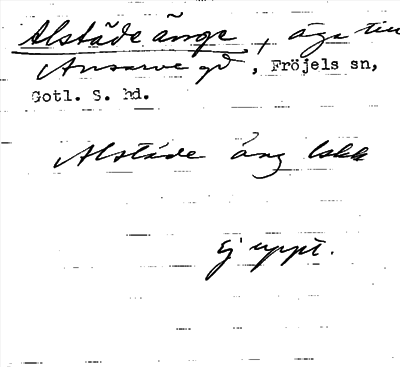 Alstäde änge, äga till
Ansarve gd, Fröjels sn,
Gotl. S. hd.
Alstäde äng lskk
Ej uppt.